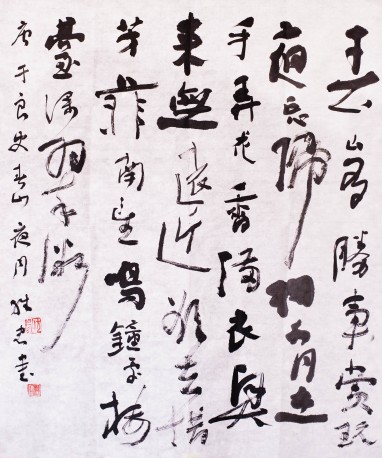 春山多勝事賞玩
夜忘歸掬水月在
手弄花香滿衣興
來無遠近欲去惜
芳菲南望鳴鐘處樓
臺深翠微
唐于良史春山夜月書